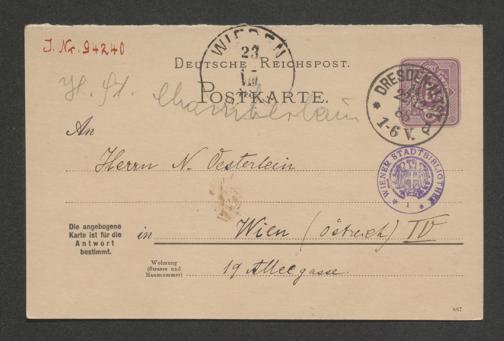 J. Nr. 94240
WIEDEN
23
DEUTSCHE REICHSPOST.
POSTKARTE.
H. St. Chamberlain
DRESDEN-ALTST.
1-6 V.
An
Herrn N. Oesterlein
WIENER STADTBIBLIOTHEK
1
Die angebogene
Karte ist für die
Antwort
bestimmt.
in Wien (Östreich) IV
Wohnung
(Strasse und
Hausnummer)
19 Alleegasse.
887